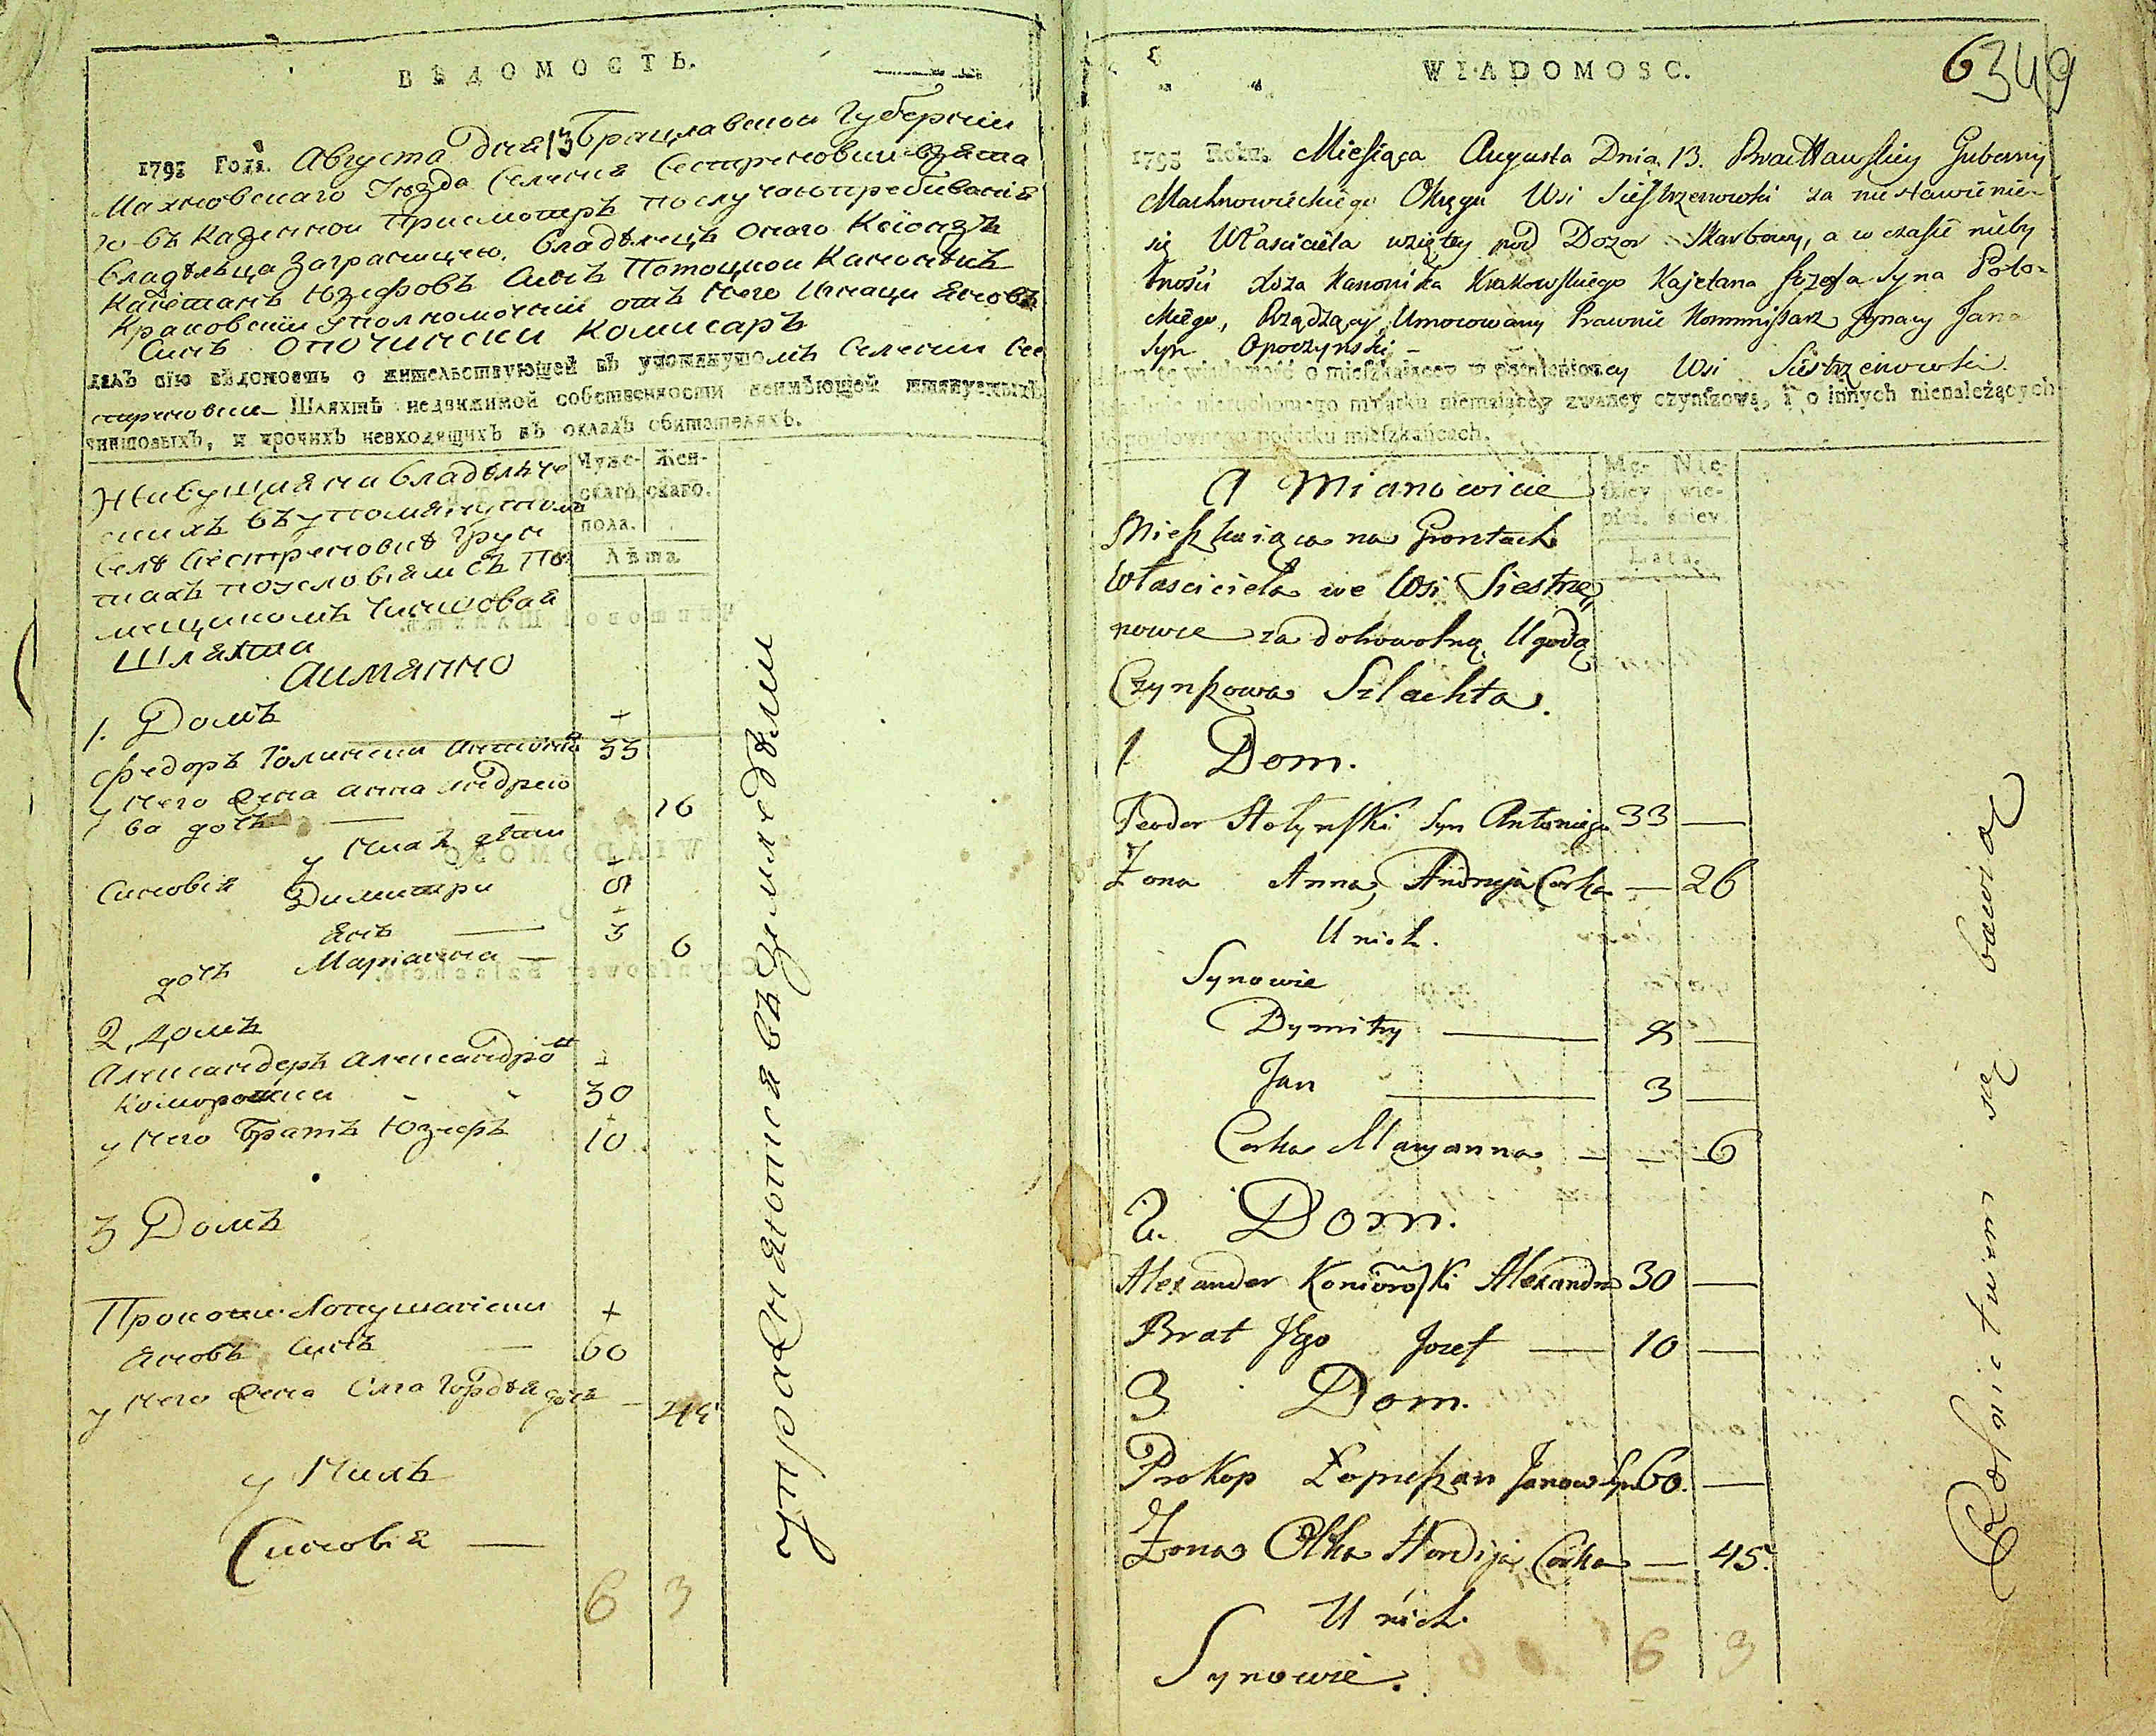 ВѢДОМОСТЬ.
1795 Года. Августа Дня 13 Брацлавскои Губерніи
Махновскаго Уезда Селенія Сестреновки взята
го въ Казеннои Присмотръ по случаю пребиванія
Владѣльца Заграницею, Владѣлецъ онаго Ксіондзъ
Каѣтанъ Юзефовъ Синъ Потоцкои Каноникъ
Краковскіи уполномочніи отъ Него Игнаци Яновъ
Синъ Опочински Комисаръ
далъ сію вѣдомость о жительствующей въ упомянутомъ Селении Сес
стреновки Шляхтѣ недвижимой собственности неимѣющей имянуемыхъ
чиншовыхъ, и прочихъ невходящихъ въ окладъ обитателяхъ.
Муже- Жен-
скаго скаго.
пола.
Лѣта
Живущия на Владѣльче
скихъ въ упомянутомъ
Селѣ Сестреновкѣ Грун
тахъ поусловіямъ съ По
мещикомъ Чиншовая
Шляхта
Аимянно
1. Домъ
Федоръ Голински Антоніи 33
у Него Жена Анна Андрео
ва дочь — 26
у Нихъ дѣти
Синовія Димитри 8
Янъ — 3
дочь Маріанна — 6
2. Домъ
Александеръ Александро
Коморовски 30
у Него Братъ Юзефъ 10
3 Домъ
Прокопи Лопушански
Яновъ Синъ — 60
у Него Жена Олга Гордѣя дочь — 45
у Нихъ
Синовія —
6 3
упражняютсявъземледѣлии
WIADOMOSC.
6349
1795 Roku. Miesiąca Augusta Dnia 13. Bracławskiey Gubernij
Machnowieckiego Okręgu Wsi Siestrzenowki za niestawienie-
się Właściciela wziętey pod Dozor Skarbowy, a w czasie nieby
tnosci Xdza Kanonika Krakowskiego Kajetana Jozefa syna Poto-
ckiego, Rządzący Umocowany Prawnie Kommissarz Jgnacy Jana
Syn Opoczynski —
dałem tę wiadomość o mieszkaiącey w pomienioney Wsi Siestrzenowki
Szlachcie nieruchomego maiątku niemaiącey zwaney czynszową, i o innych nienależących
do pogłownego podatku mieszkańcach.
Mę- Nie-
skiey wie-
płci. sciey.
Lata.
A Mianowicie
Mieszkaiąca na Grontach
Własciciela we Wsi Siestrze,,
nowce za dobrowolną Ugodą
Czynszowa Szlachta.
1 Dom.
Teodor Holynski Syn Antoniego 33 —
Zona Anna, Andrzeja Corka — 26
U nich.
Synowie
Dymitry — 8 —
Jan — 3 —
Corka Maryanna — — 6
2. Dom.
Alexander Komorowski Alexandra 30 —
Brat Jego Jozef — 10 —
3 Dom.
Prokop Łopuszan Janow Syn 60. —
Zona Olha Hordija Corka — 45.
U nich.
Synowie.
6 3
Rolnictwem się bawiąc